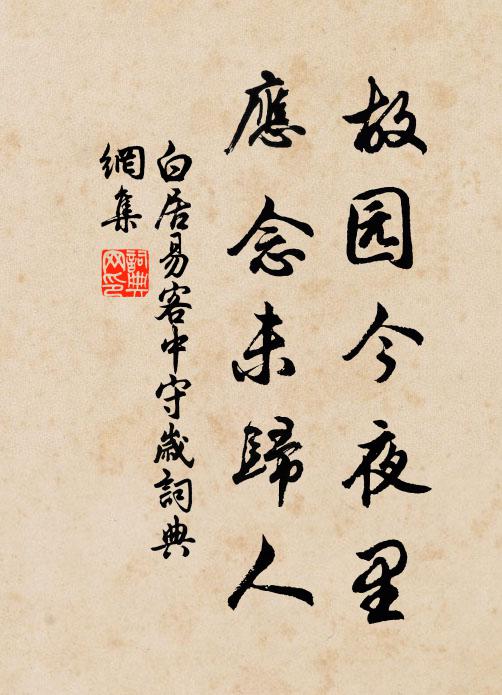 故园今夜里
應念未歸人
白居易客中守歲詞典
網集
詞典网印